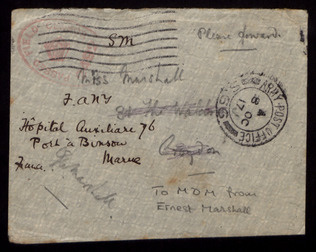 SM
Please forward.
Miss Marshall
F.A.N.Y
Hopital Auxiliare 76
Port à Binson
Marne
France
Croydon
ARMY POST OFFICE
4 OC
17
To MDM from
Ernest Marshall